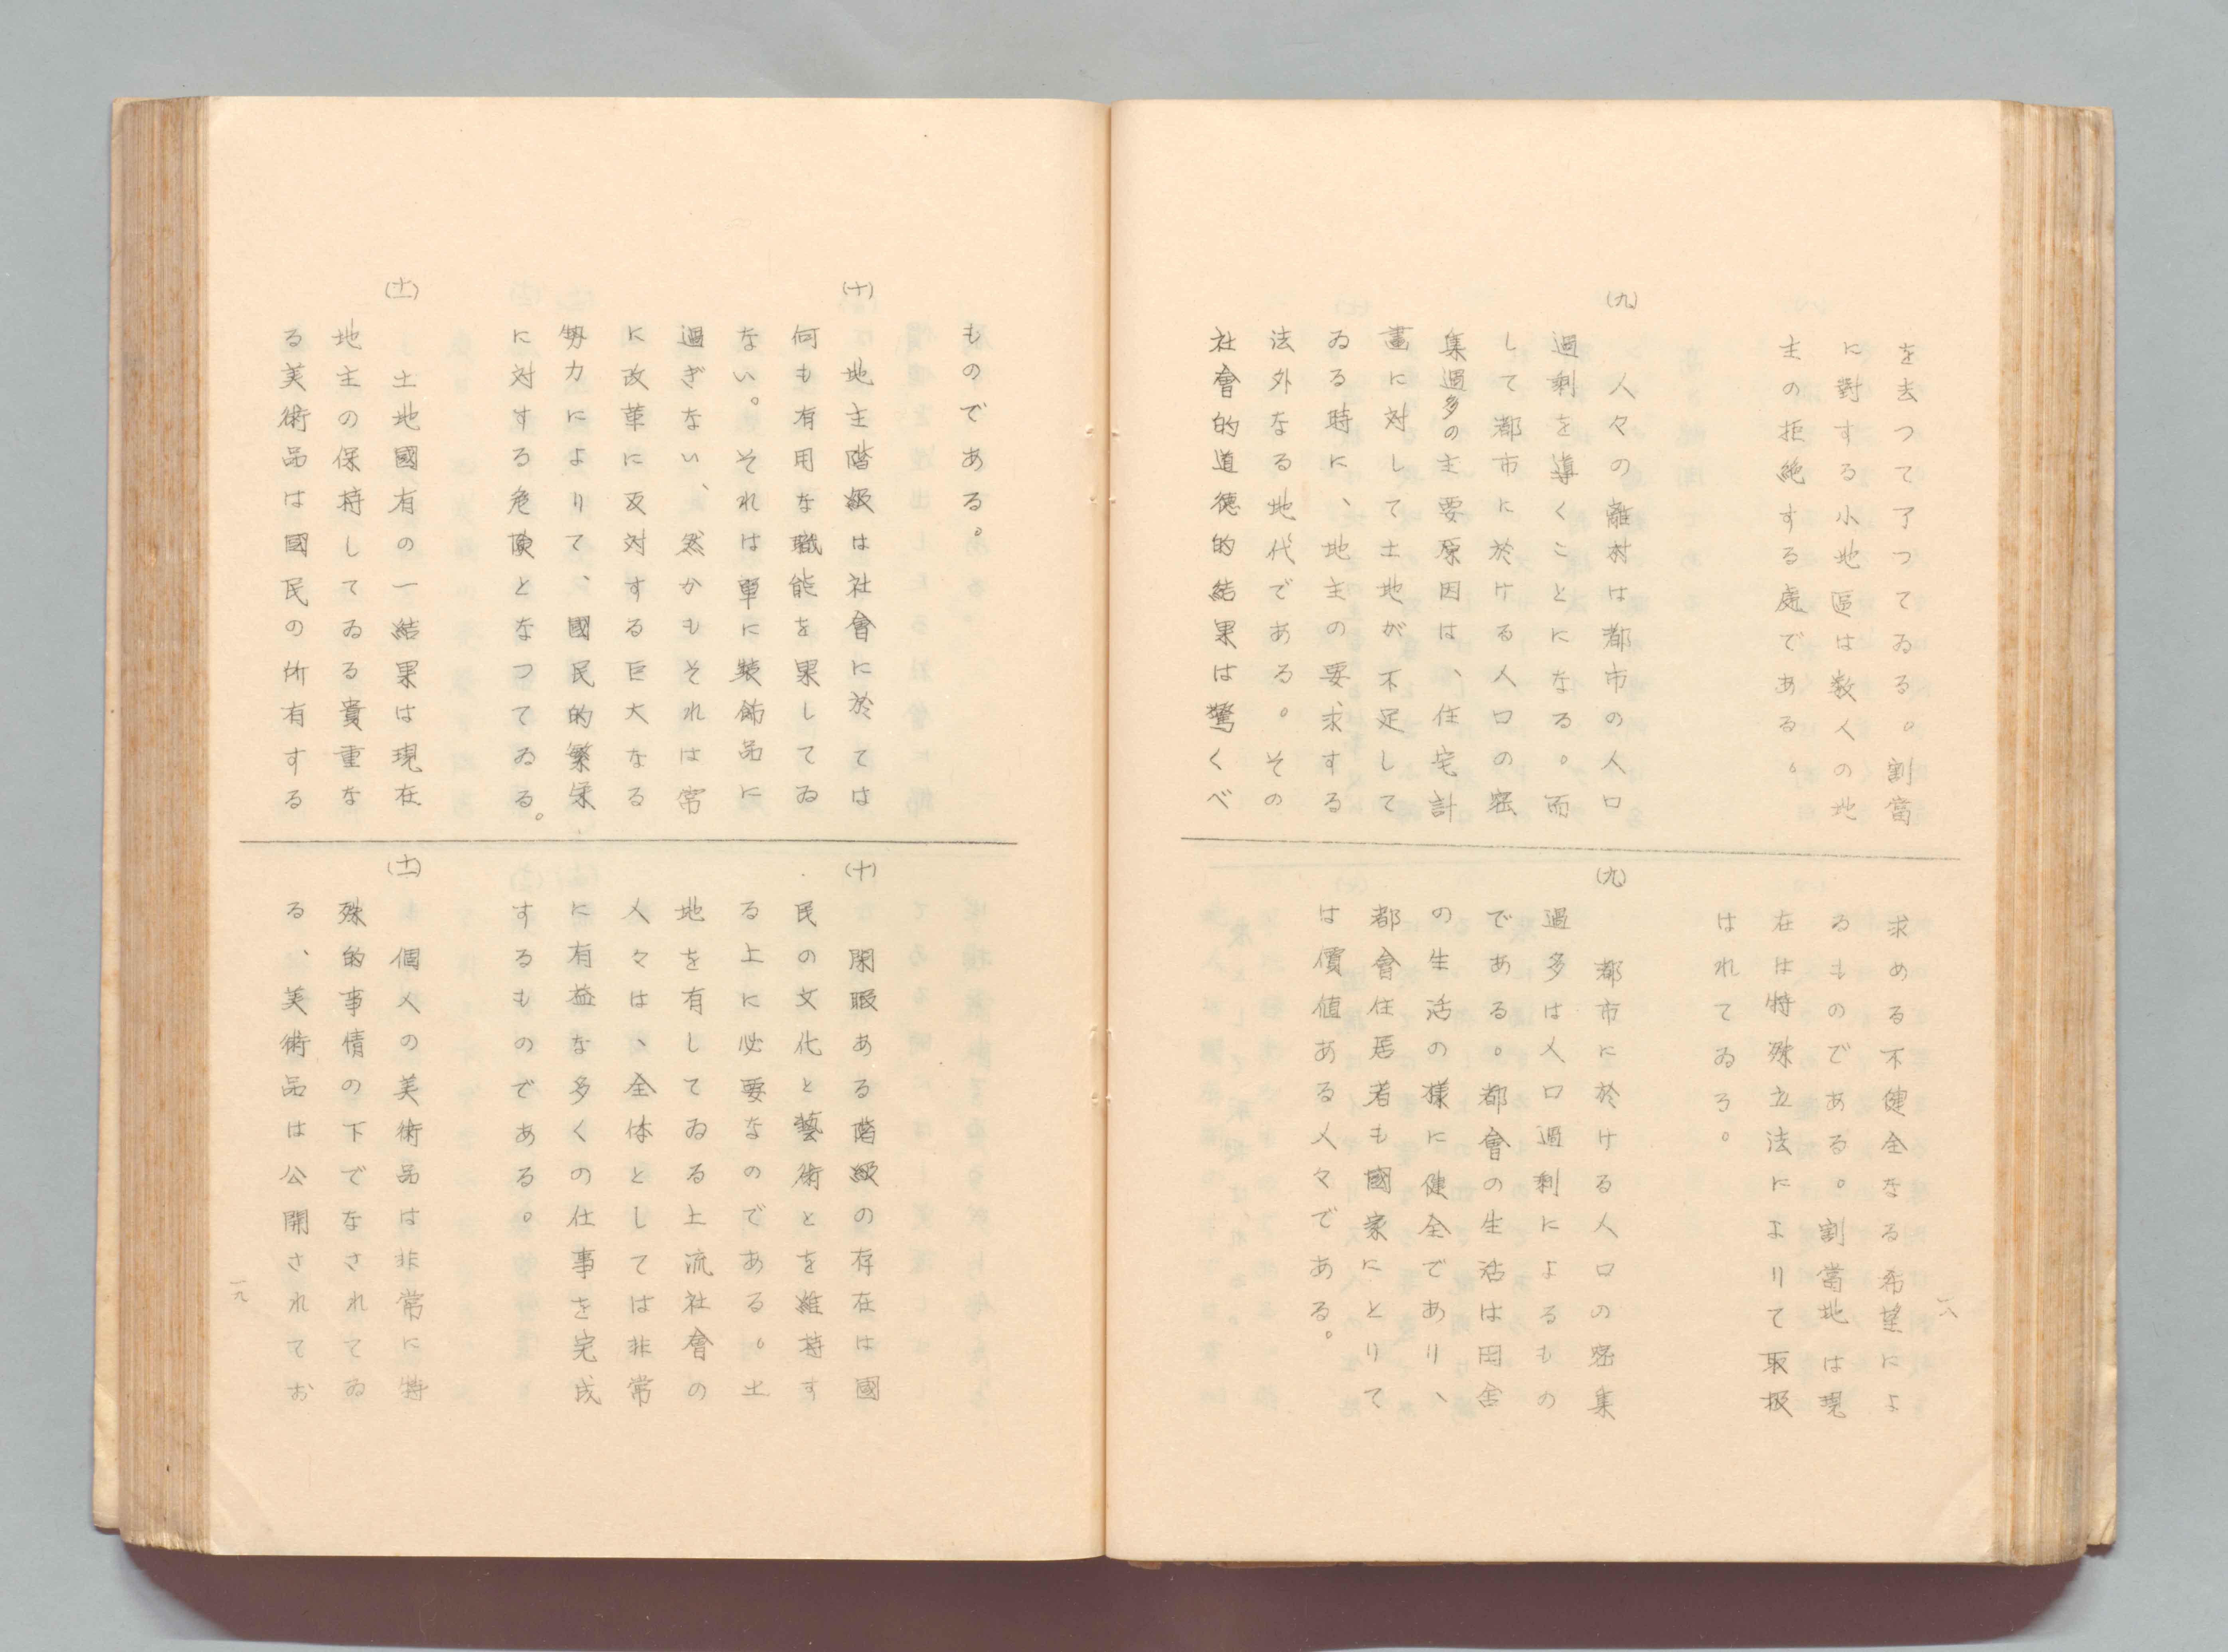 を去つて了つてゐる。割當
に對する小地區は数人の地
主の拒絶する處である。
(九)
人々の離村は都市の人口
過剰を導くことになる。而
して都市に於ける人口の密
集過多の主要原因は、住宅計
畫に対して土地が不足して
ゐる時に、地主の要求する
法外なる地代である。その
社會的道徳的結果は驚くべ
求める不健全なる希望によ
るものである。割當地は現
在は特殊立法によりて取扱
はれてゐる。
(九)
都市に於ける人口の密集
過多は人口過剰によるもの
である。都會の生活は田舎
の生活の様に健全であり、
都會住居者も國家にとりて
は價値ある人々である。
一八
ものである。
(十)
地主階級は社會に於ては
何も有用な職能を果してゐ
ない。それは單に装飾品に
過ぎない、然かもそれは常
に改革に反対する巨大なる
勢力によりて、國民的繁栄
に対する危険となつてゐる。
(十一)
土地國有の一結果は現在
地主の保持してゐる貴重な
る美術品は國民の所有する
(十)
閑暇ある階級の存在は國
民の文化と藝術とを維持す
る上に必要なのである。土
地を有してゐる上流社會の
人々は、全体としては非常
に有益な多くの仕事を完成
するものである。
(十一)
個人の美術品は非常に特
殊的事情の下でなされてゐ
る、美術品は公開されてお
一九